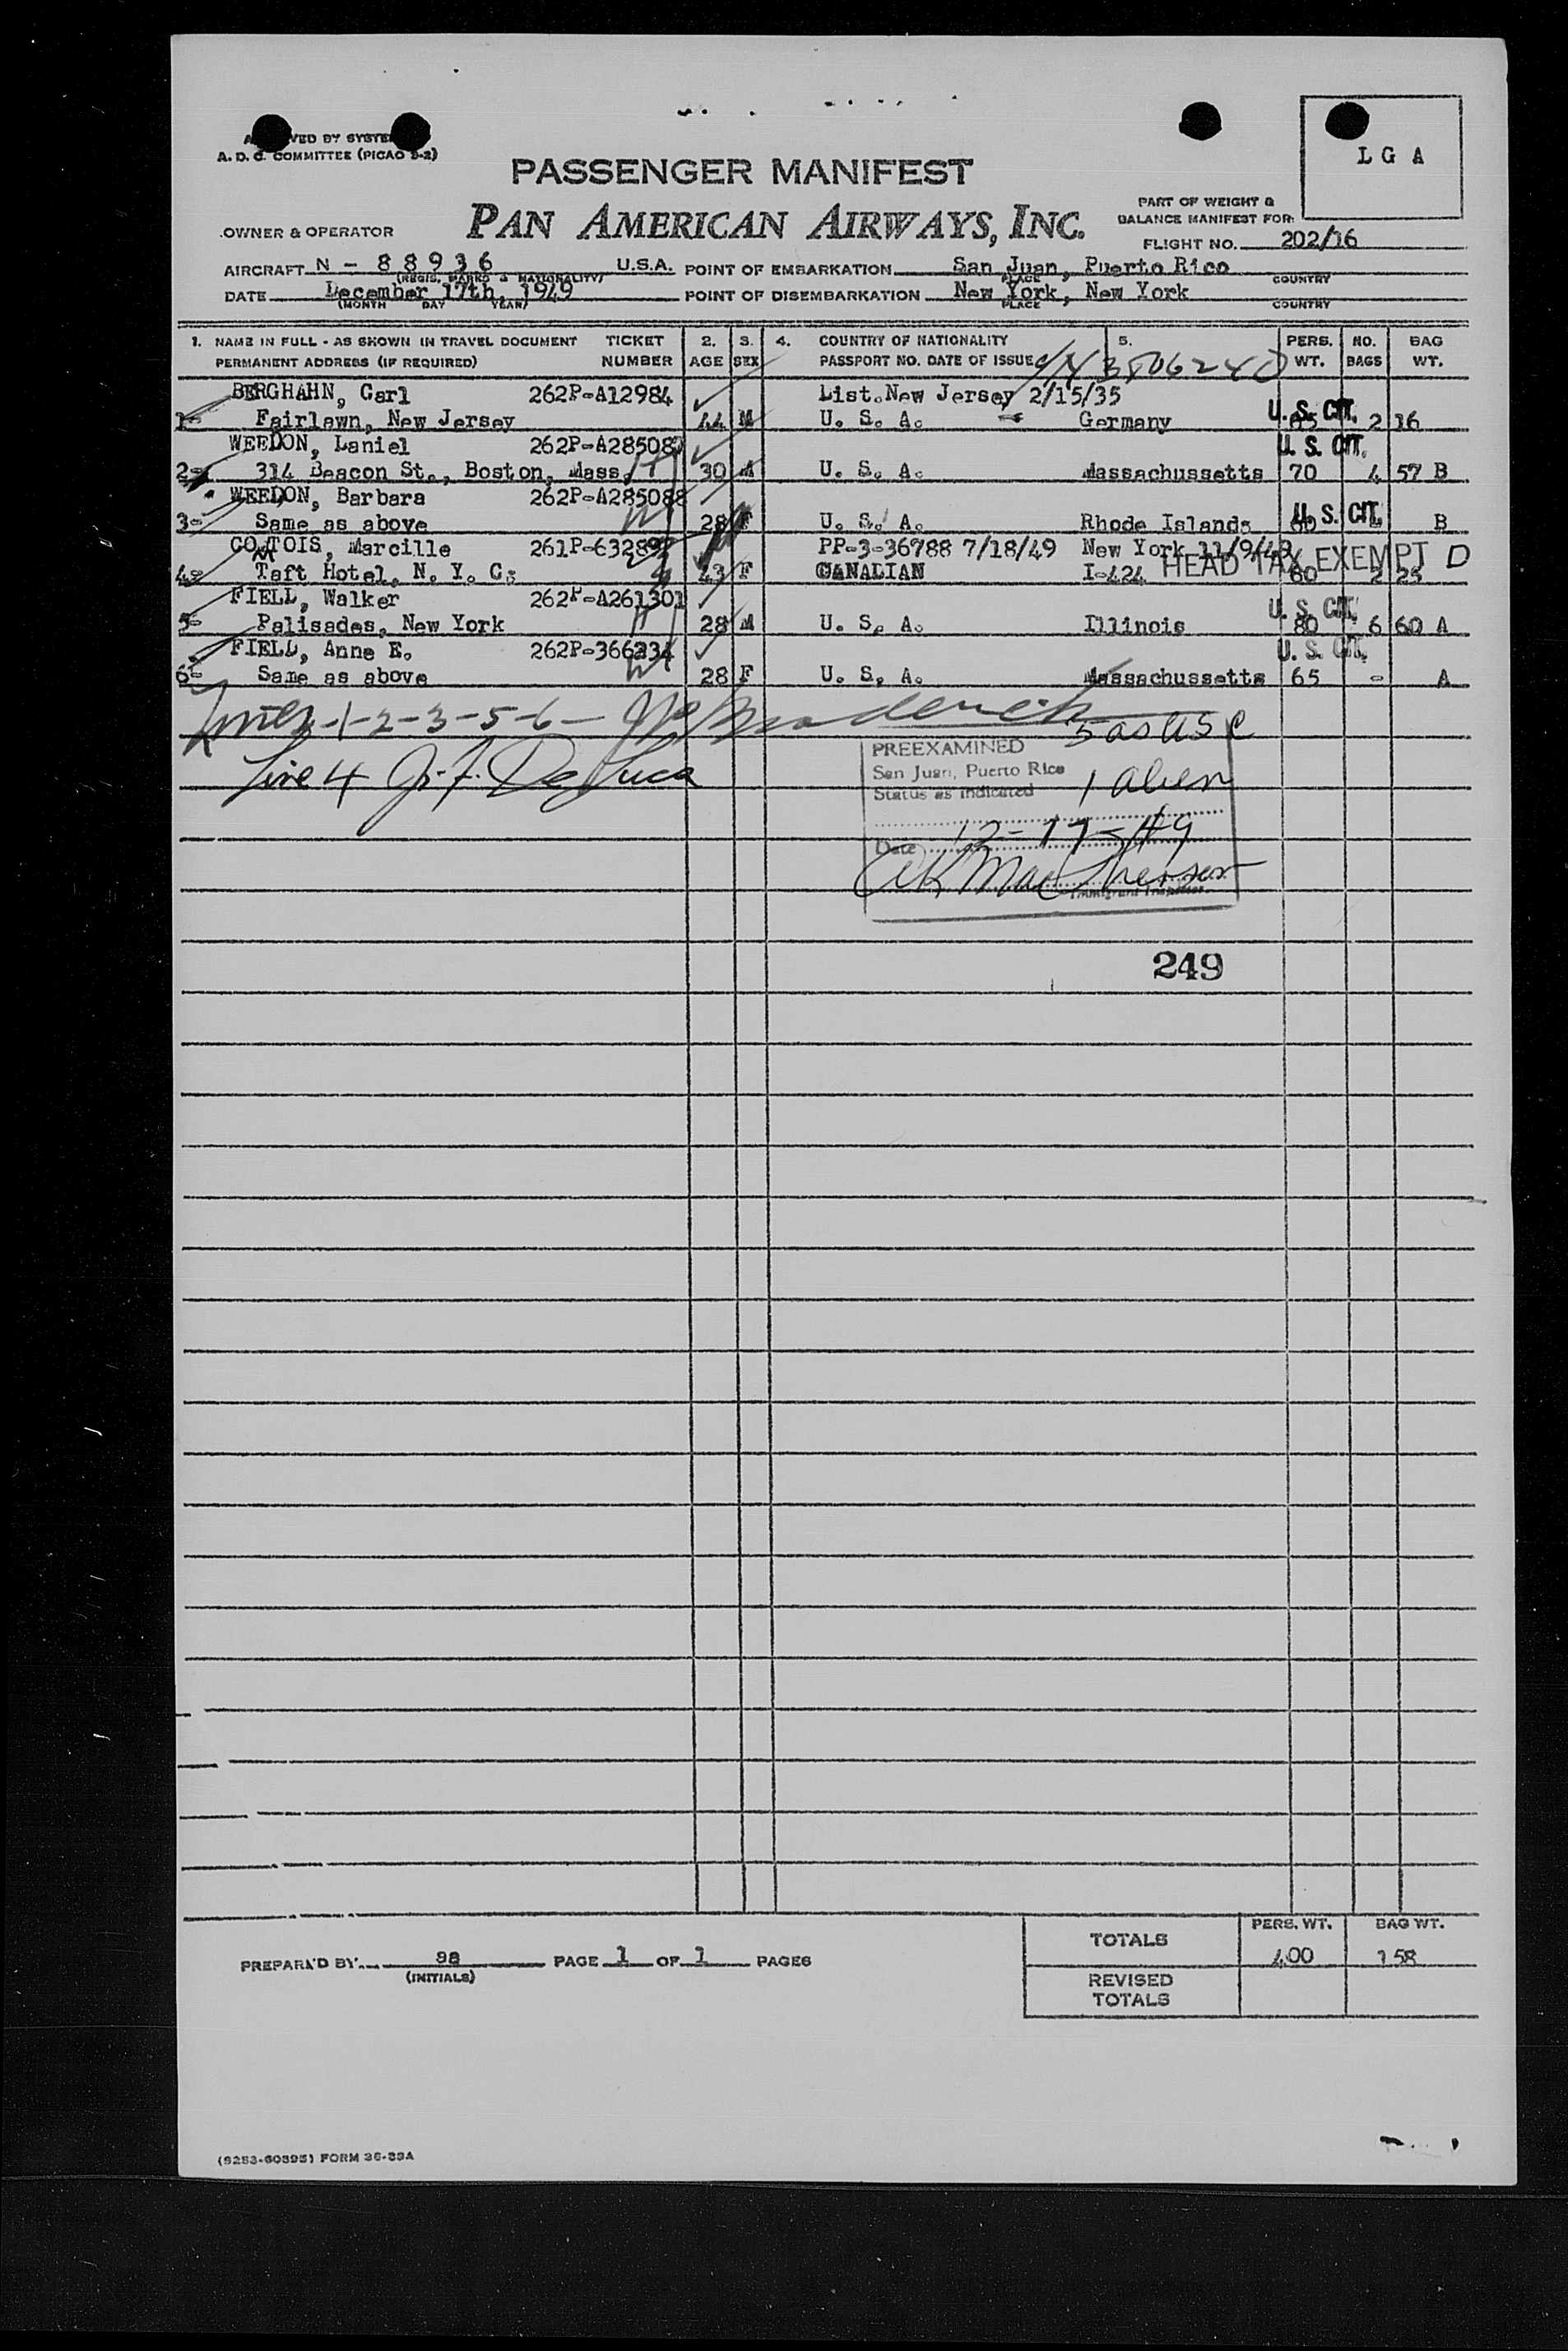 A. D. C. COMMITTEE (PICAO 9-2)
LGA
PASSENGER MANIFEST
PART OF WEIGHT &
BALANCE MANIFEST FOR:
OWNER & OPERATOR PAN AMERICAN AIRWAYS, INC.
FLIGHT NO. 202/16
AIRCRAFT N - 88936 U.S.A. POINT OF EMBARKATION San Juan, Puerto Rico
(REGIS. MARKS & NATIONALITY) PLACE COUNTRY
DATE December 17th, 1949 POINT OF DISEMBARKATION New York, New York
(MONTH DAY YEAR) PLACE COUNTRY
1. NAME IN FULL - AS SHOWN IN TRAVEL DOCUMENT TICKET 2. 3. 4. COUNTRY OF NATIONALITY 5. PERS. NO. BAG
PERMANENT ADDRESS (IF REQUIRED) NUMBER AGE SEX PASSPORT NO. DATE OF ISSUE WT. BAGS WT.
BERGHAHN, Carl 262P-A12984 List. New Jersey 2/15/35
1- Fairlawn, New Jersey 44 M U. S. A. Germany U. S. CIT. 2 16
WEEDON, Laniel U. S. CIT.
2- 314 Beacon St., Boston, Mass. 30 M U. S. A. Massachussetts 70 4 57 B
WEEDON, Barbara 262P-A285088
3- Same as above 28 F U. S. A. Rhode Islands U. S. CIT. B
Marcille PP-3-36788 7/18/49 New York 11/9/49
4- Taft Hotel, N. Y. C. 43 F CANALIAN I-424 HEAD TAX EXEMPT D
FIELL, Walker 262P-A261301 U. S. CIT.
5- Palisades, New York 28 M U. S. A. Illinois 80 6 60 A
FIELL, Anne E. 262P-366234 U. S. CIT.
6- Same as above 28 F U. S. A. Massachussetts 65 - A
Lines-1-2-3-5-6-
5 as USC
PREEXAMINED
San Juan, Puerto Rico
Line 4 J. F. De Luca
Status as indicated 1 alien
Date 12-17-49
Immigrant Inspector
249
TOTALS PERS. WT. BAG WT.
400 158
PREPAR'D BY 98 PAGE 1 OF 1 PAGES
(INITIALS)
REVISED
TOTALS
(9253-60395) FORM 36-39A